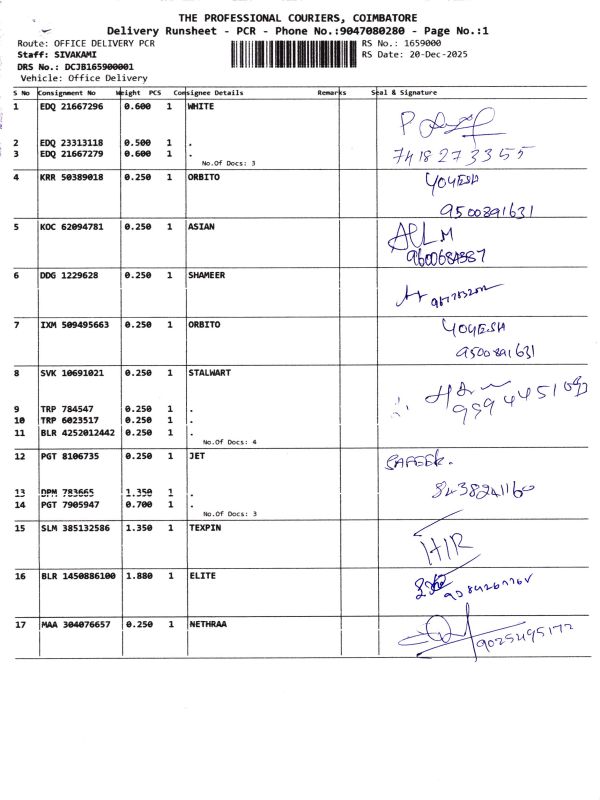 THE PROFESSIONAL COURIERS, COIMBATORE
Delivery Runsheet - PCR - Phone No.:9047080280 - Page No.:1
Route: OFFICE DELIVERY PCR RS No.: 1659000
Staff: SIVAKAMI RS Date: 20-Dec-2025
DRS No.: DCJB165900001
Vehicle: Office Delivery
S No Consignment No Weight PCS Consignee Details Remarks Seal & Signature
1 EDQ 21667296 0.600 1 WHITE
2 EDQ 23313118 0.500 1 .
3 EDQ 21667279 0.600 1 . 7418273355
No.Of Docs: 3
4 KRR 50389018 0.250 1 ORBITO YOYESH
9500891631
5 KOC 62094781 0.250 1 ASIAN
9600684387
6 DDG 1229628 0.250 1 SHAMEER
7 IXM 509495663 0.250 1 ORBITO YOYESH
9500891631
8 SVK 10691021 0.250 1 STALWART
9 TRP 784547 0.250 1 .
10 TRP 6023517 0.250 1 .
11 BLR 4252012442 0.250 1 .
No.Of Docs: 4
12 PGT 8106735 0.250 1 JET
13 DPM 783665 1.350 1 . 8438241160
14 PGT 7905947 0.700 1 .
No.Of Docs: 3
15 SLM 385132586 1.350 1 TEXPIN
16 BLR 1450886100 1.880 1 ELITE
17 MAA 304076657 0.250 1 NETHRAA
9025495172